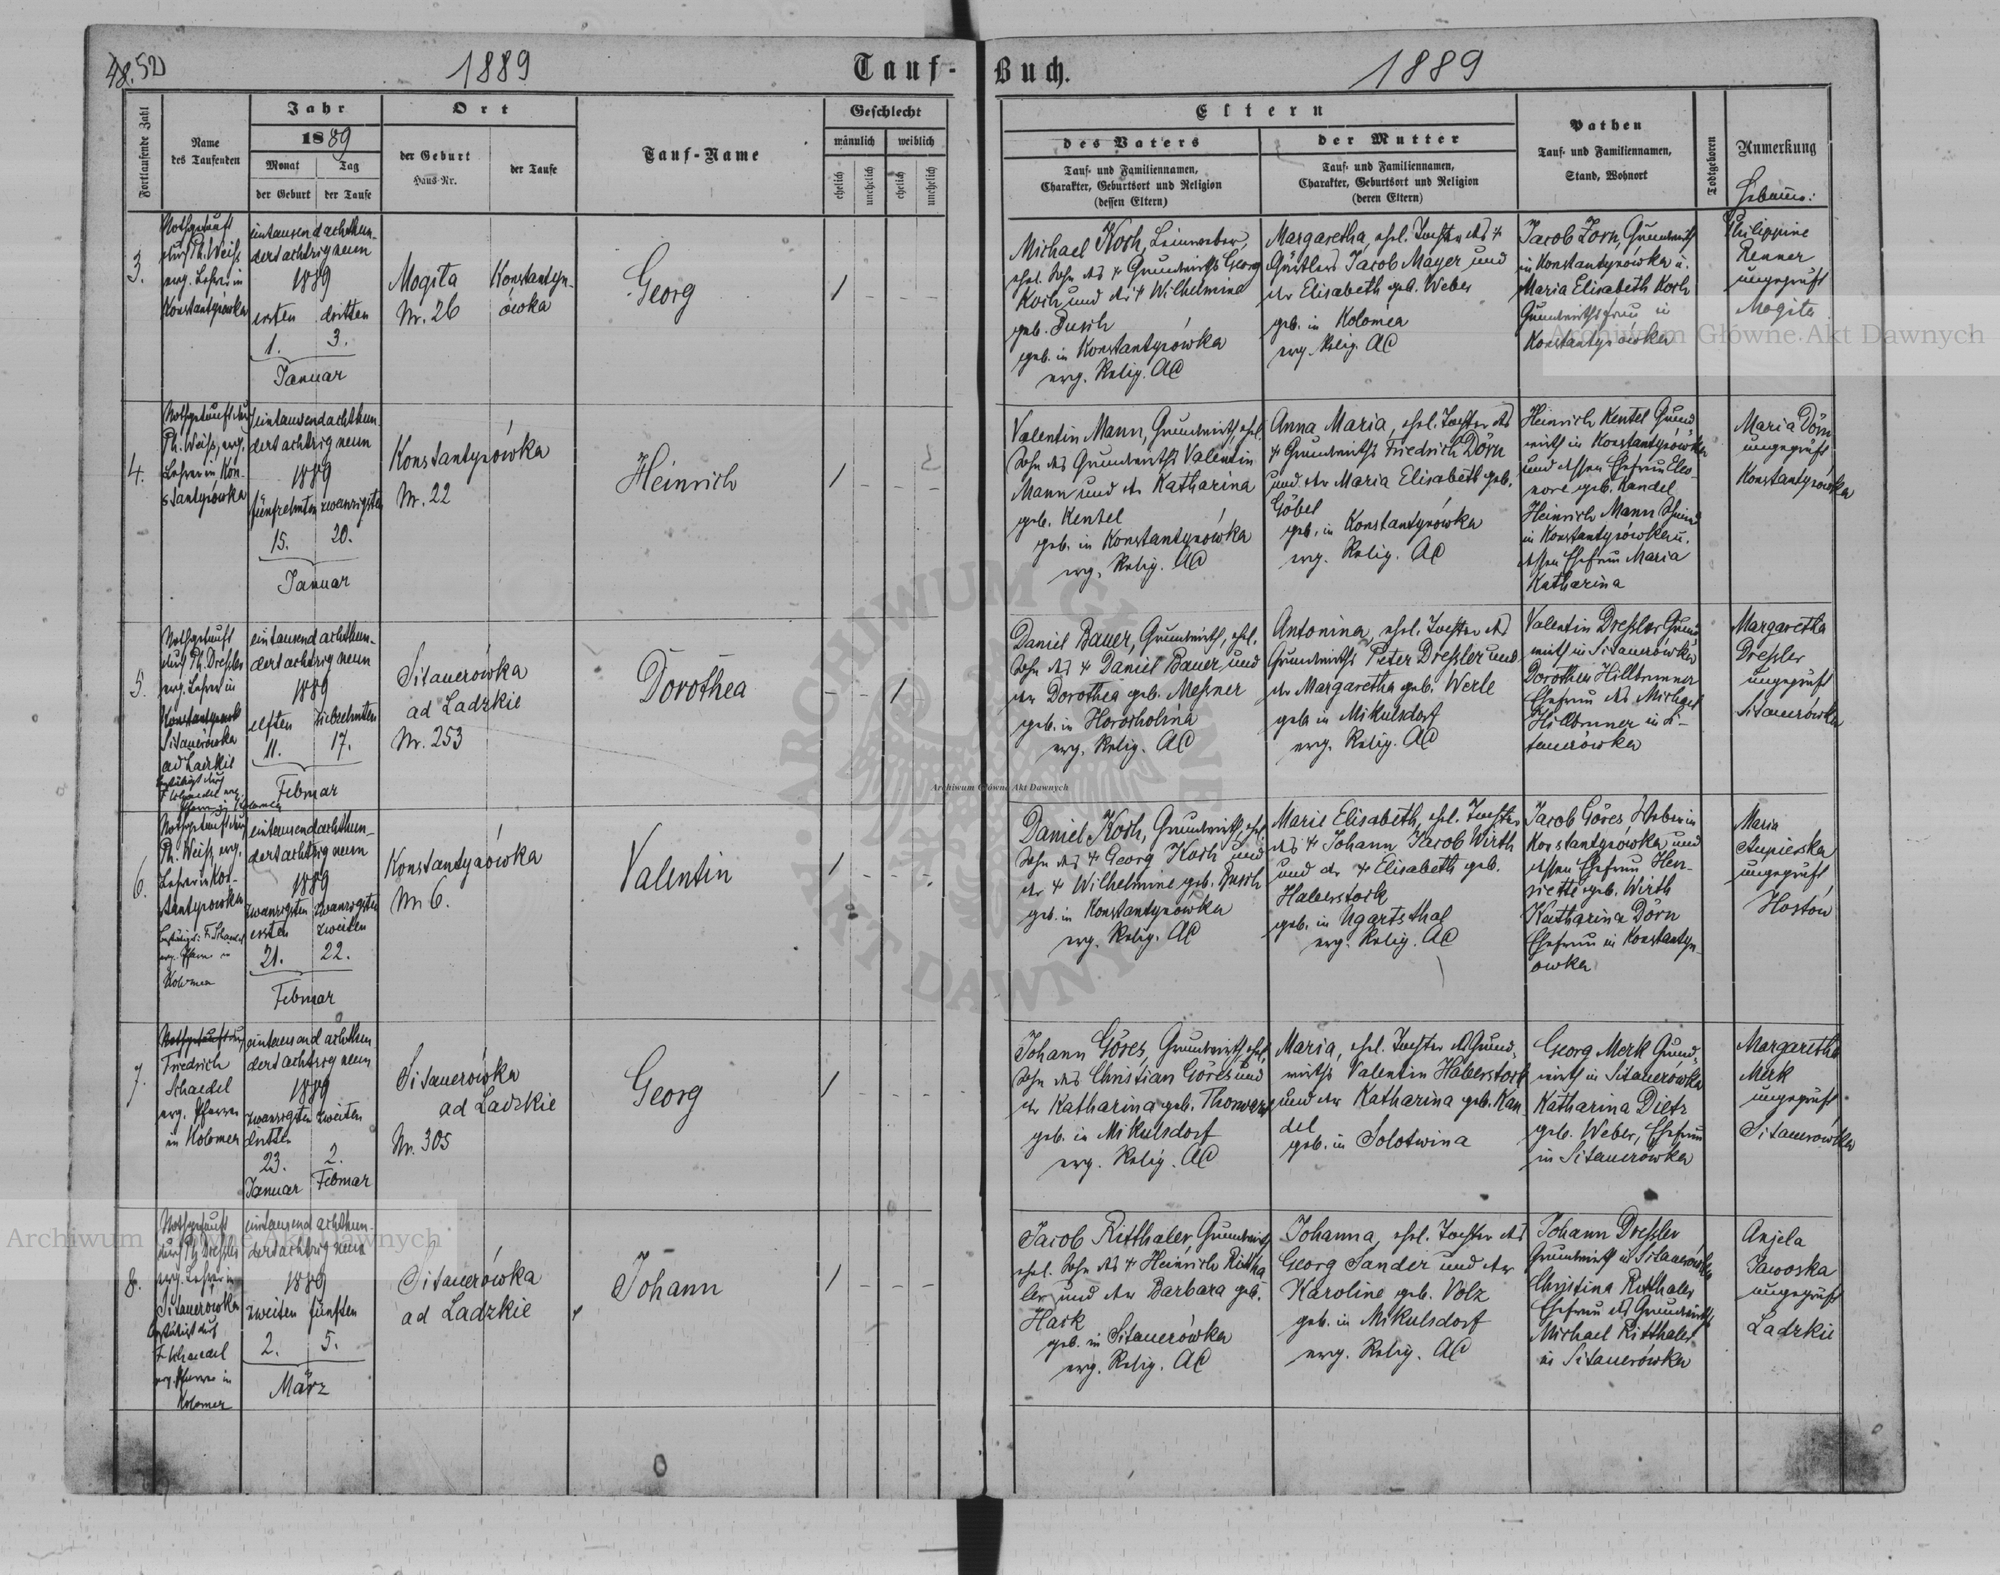 48. 52
1889
Tauf-
Buch.
1889
Fortlaufende Zahl
Name
des Taufenden
Jahr
1889
Monat
Tag
der Geburt
der Taufe
Ort
der Geburt
Haus-Nr.
der Taufe
Tauf-Name
Geschlecht
männlich
weiblich
ehelich
unehelich
ehelich
unehelich
Eltern
des Vaters
Tauf- und Familiennamen,
Charakter, Geburtsort und Religion
(dessen Eltern)
der Mutter
Tauf- und Familiennamen,
Charakter, Geburtsort und Religion
(deren Eltern)
Pathen
Tauf- und Familiennamen,
Stand, Wohnort
Todtgeboren
Anmerkung
3.
Nothgetauft
durch Ph. Weiss
evg. Lehrer in
Konstantynówka
eintausendachthun-
dertachtzigneun
1889
ersten dritten
1. 3.
Januar
Mogila
Nr. 26
Konstantyn-
ówka
Georg
1 - - -
Michael Koch, Leinweber,
ehel. Sohn des + Grundwirths Georg
Koch und der + Wilhelmine
geb. Busch
geb. in Konstantynówka
evg. Relig. AC
Margaretha, ehel. Tochter des +
Gärtlers Jacob Mayer und
der Elisabeth geb. Weber
geb. in Kolomea
evg. Relig. AC
Jacob Zorn, Grundwirth
in Konstantynówka u.
Maria Elisabeth Koch
Grundwirthsfrau in
Konstantynówka
Philippine
Renner
ungeprüft
Mogila
4.
Nothgetauft durch
Ph. Weiss, evg.
Lehrer in Kon-
stantynówka
eintausendachthun-
dertachtzigneun
1889
fünfzehnten zwanzigsten
15. 20.
Januar
Konstantynówka
Nr. 22
Heinrich
1 - - -
Valentin Mann, Grundwirth, ehel.
Sohn des Grundwirths Valentin
Mann und der Katharina
geb. Kentel
geb. in Konstantynówka
evg. Relig. AC
Anna Maria, ehel. Tochter des
+ Grundwirths Friedrich Dörn
und der Maria Elisabeth geb.
Göbel
geb. in Konstantynówka
evg. Relig. AC
Heinrich Kentel Grund-
wirth in Konstantynówka
und dessen Ehefrau Eleo-
nore geb. Kandel
Heinrich Mann
in Konstantynówka u.
dessen Ehefrau Maria
Katharina
Maria Dörn
ungeprüft
Konstantynówka
5.
Nothgetauft
durch Ph. Dressler
evg. Lehrer in
Sitauerówka
ad Ladzkie
eintausend achthun-
dertachtzig neun
1889
elften siebzehnten
11. 17.
Februar
Sitauerówka
ad Ladzkie
Nr. 253
Dorothea
- - 1 -
Daniel Bauer, Grundwirth, ehel.
Sohn des + Daniel Bauer und
der Dorothea geb. Messner
geb. in Horocholina
evg. Relig. AC
Antonina, ehel. Tochter des
Grundwirths Peter Dressler und
der Margaretha geb. Werle
geb. in Mikulsdorf
evg. Relig. AC
Valentin Dressler Grund-
wirth in Sitauerówka
Dorothea Hillbrunner
Ehefrau des Michael
Hillbrunner in Si-
tauerówka
Margaretha
Dressler
ungeprüft
Sitauerówka
6.
Nothgetauft durch
Ph. Weiss, evg.
Lehrer in Kon-
stantynówka
evg. Pfarrer in
Kolomea
eintausendachthun-
dertachtzig neun
1889
zwanzigsten zwanzigsten
ersten zweiten
21. 22.
Februar
Konstantynówka
Nr. 6.
Valentin
1 - - -
Daniel Koch, Grundwirth, ehel.
Sohn des + Georg Koch und
der + Wilhelmine geb. Busch
geb. in Konstantynówka
evg. Relig. AC
Marie Elisabeth, ehel. Tochter
des + Johann Jacob Wirth
und der + Elisabeth geb.
Haberstock
geb. in Ugartsthal
evg. Relig. AC
Jacob Göres Weber in
Konstantynówka und
dessen Ehefrau Hen-
riette geb. Wirth
Katharina Dörn
Ehefrau in Konstantyn-
ówka
Maria
ungeprüft
Hostów
7.
Friedrich
Schaedel
evg. Pfarrer
in Kolomea
eintausend achthun-
dertachtzig neun
1889
zwanzigsten zweiten
dritten
23. 2.
Januar Februar
Sitauerówka
ad Ladzkie
Nr. 305
Georg
1 - - -
Johann Göres, Grundwirth, ehel.
Sohn des Christian Göres und
der Katharina geb.
geb. in Mikulsdorf
evg. Relig. AC
Maria, ehel. Tochter des Grund-
wirths Valentin Haberstock
und der Katharina geb. Kan
del
geb. in Solotwina
Georg Merk Grund-
wirth in Sitauerówka
Katharina Dietz
geb. Weber, Ehefrau
in Sitauerówka
Margaretha
Merk
ungeprüft
Sitauerówka
8.
Nothgetauft
durch Ph. Dressler
evg. Lehrer in
Sitauerówka
bestätigt durch
F Schaedel
evg. Pfarrer in
Kolomea
eintausend achthun-
dertachtzig neun
1889
zweiten fünften
2. 5.
März
Sitauerówka
ad Ladzkie
Johann
1 - - -
Jacob Ritthaler Grundwirth
ehel. Sohn des + Heinrich Rittha
ler und der Barbara geb.
Hack
geb. in Sitauerówka
evg. Relig. AC
Johanna, ehel. Tochter des
Georg Sander und der
Karoline geb. Volz
geb. in Mikulsdorf
evg. Relig. AC
Johann Dressler
Grundwirth in Sitauerówka
Christina Ritthaler
Ehefrau des Grundwirths
Michael Ritthaler
in Sitauerówka
Anjela
Jawoska
ungeprüft
Ladzkie
Archiwum Główne Akt Dawnych
Archiwum Główne Akt Dawnych
Archiwum Główne Akt Dawnych